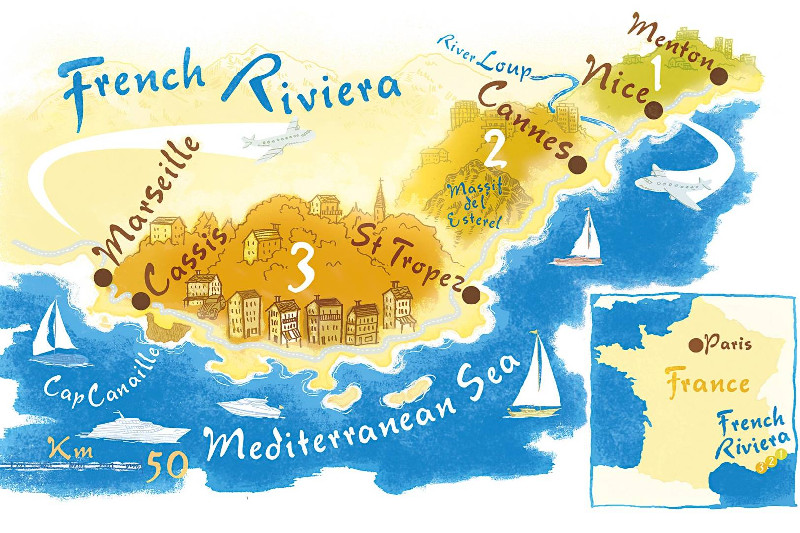 French Riviera
Menton
1
Nice
River Loup
Cannes
2
Massif
del
Esterel
Marseille
Cassis
St Tropez
3
Cap Canaille
Mediterranean Sea
Km
50
Paris
France
French
Riviera
3 2 1